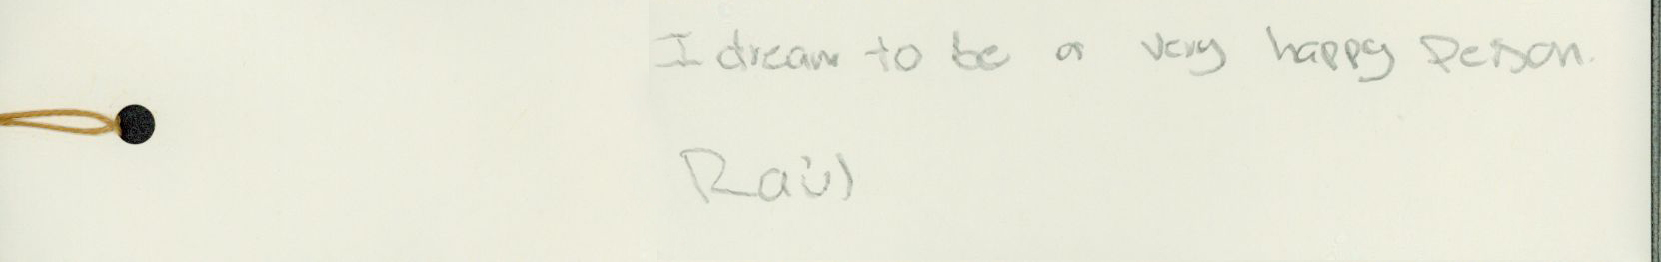 I dream to be a very happy person.
Raúl